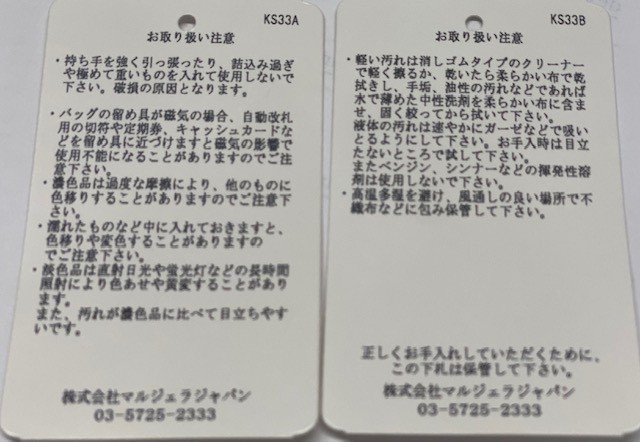 KS33A
お取り扱い注意
・持ち手を強く引っ張ったり、詰込み過ぎ
や極めて重いものを入れて使用しないで
下さい。破損の原因となります。
・バッグの留め具が磁気の場合、自動改札
用の切符や定期券、キャッシュカードな
どを留め具に近づけますと磁気の影響で
使用不能になることがありますのでご注
意下さい。
・濃色品は過度な摩擦により、他のものに
色移りすることがありますのでご注意下
さい。
・濡れたものなど中に入れておきますと、
色移りや変色することがありますの
でご注意下さい。
・淡色品は直射日光や蛍光灯などの長時間
照射により色あせや黄変することがあり
ます。
また、汚れが濃色品に比べて目立ちやす
いです。
株式会社マルジェラジャパン
03-5725-2333
KS33B
お取り扱い注意
・軽い汚れは消しゴムタイプのクリーナー
で軽く擦るか、乾いたら柔らかい布で乾
拭きし、手垢、油性の汚れなどであれば
水で薄めた中性洗剤を柔らかい布に含ま
せ、固く絞ってから拭いて下さい。
液体の汚れは速やかにガーゼなどで吸い
とるようにして下さい。お手入時は目立
たないところで試して下さい。
またベンジン、シンナーなどの揮発性溶
剤は使用しないで下さい。
・高温多湿を避け、風通しの良い場所で不
織布などに包み保管して下さい。
正しくお手入れしていただくために、
この下札は保管して下さい。
株式会社マルジェラジャパン
03-5725-2333